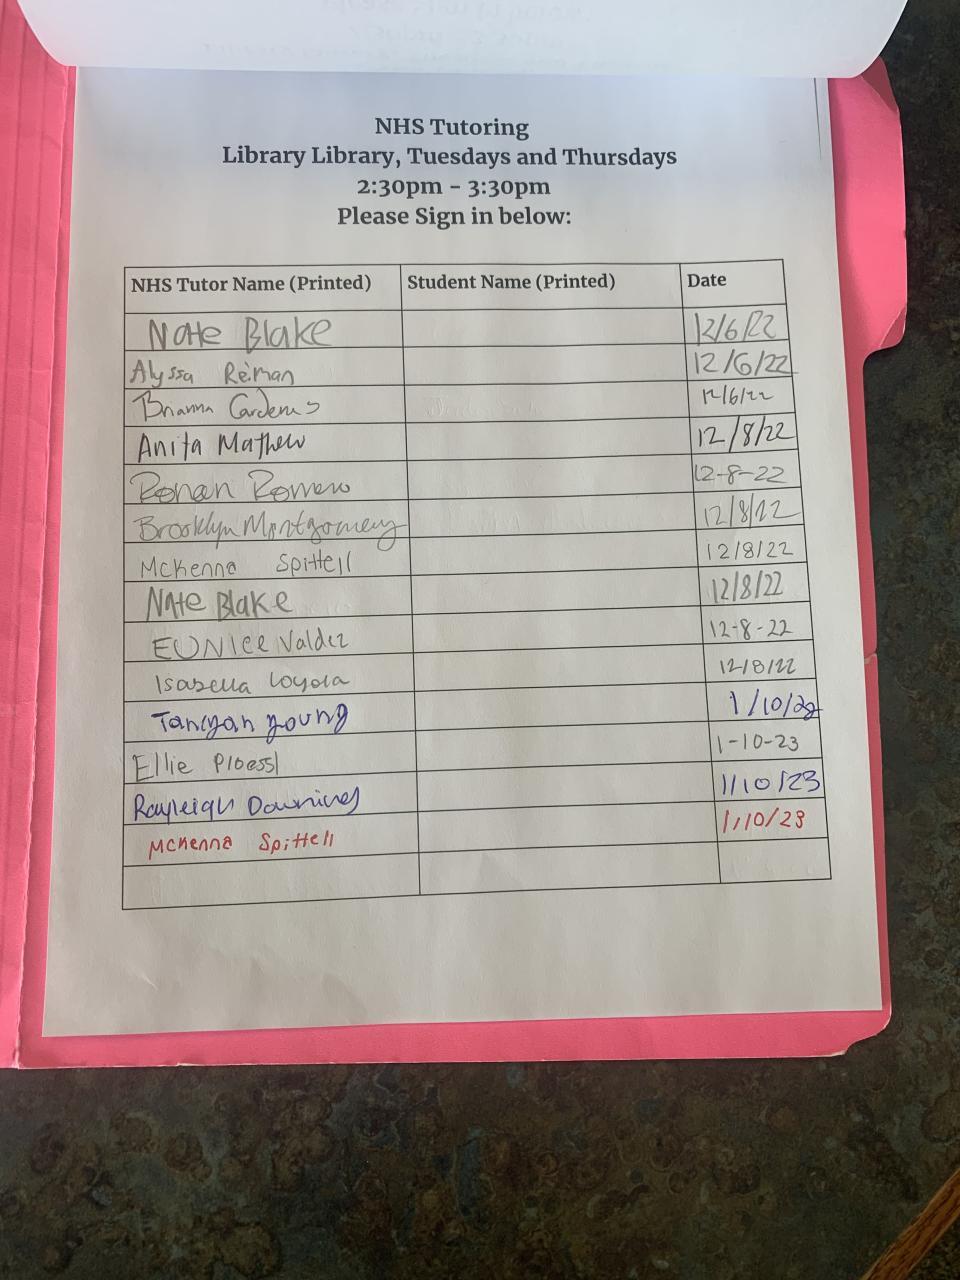 NHS Tutoring
Library Library, Tuesdays and Thursdays
2:30pm - 3:30pm
Please Sign in below:
NHS Tutor Name (Printed) Student Name (Printed) Date
Nate Blake 12/6/22
Alyssa Reiman 12/6/22
Brianna Cardenas 12/6/22
Anita Mathew 12/8/22
Ronan Romero 12-8-22
Brooklyn Montgomery 12/8/22
McKenna Spittell 12/8/22
Nate Blake 12/8/22
EUNICE Valdez 12-8-22
Isabella Loyola 12/8/22
young 1/10/23
Ellie Ploessl 1-10-23
Rayleigh Downing 1/10/23
McKenna Spittell 1/10/23